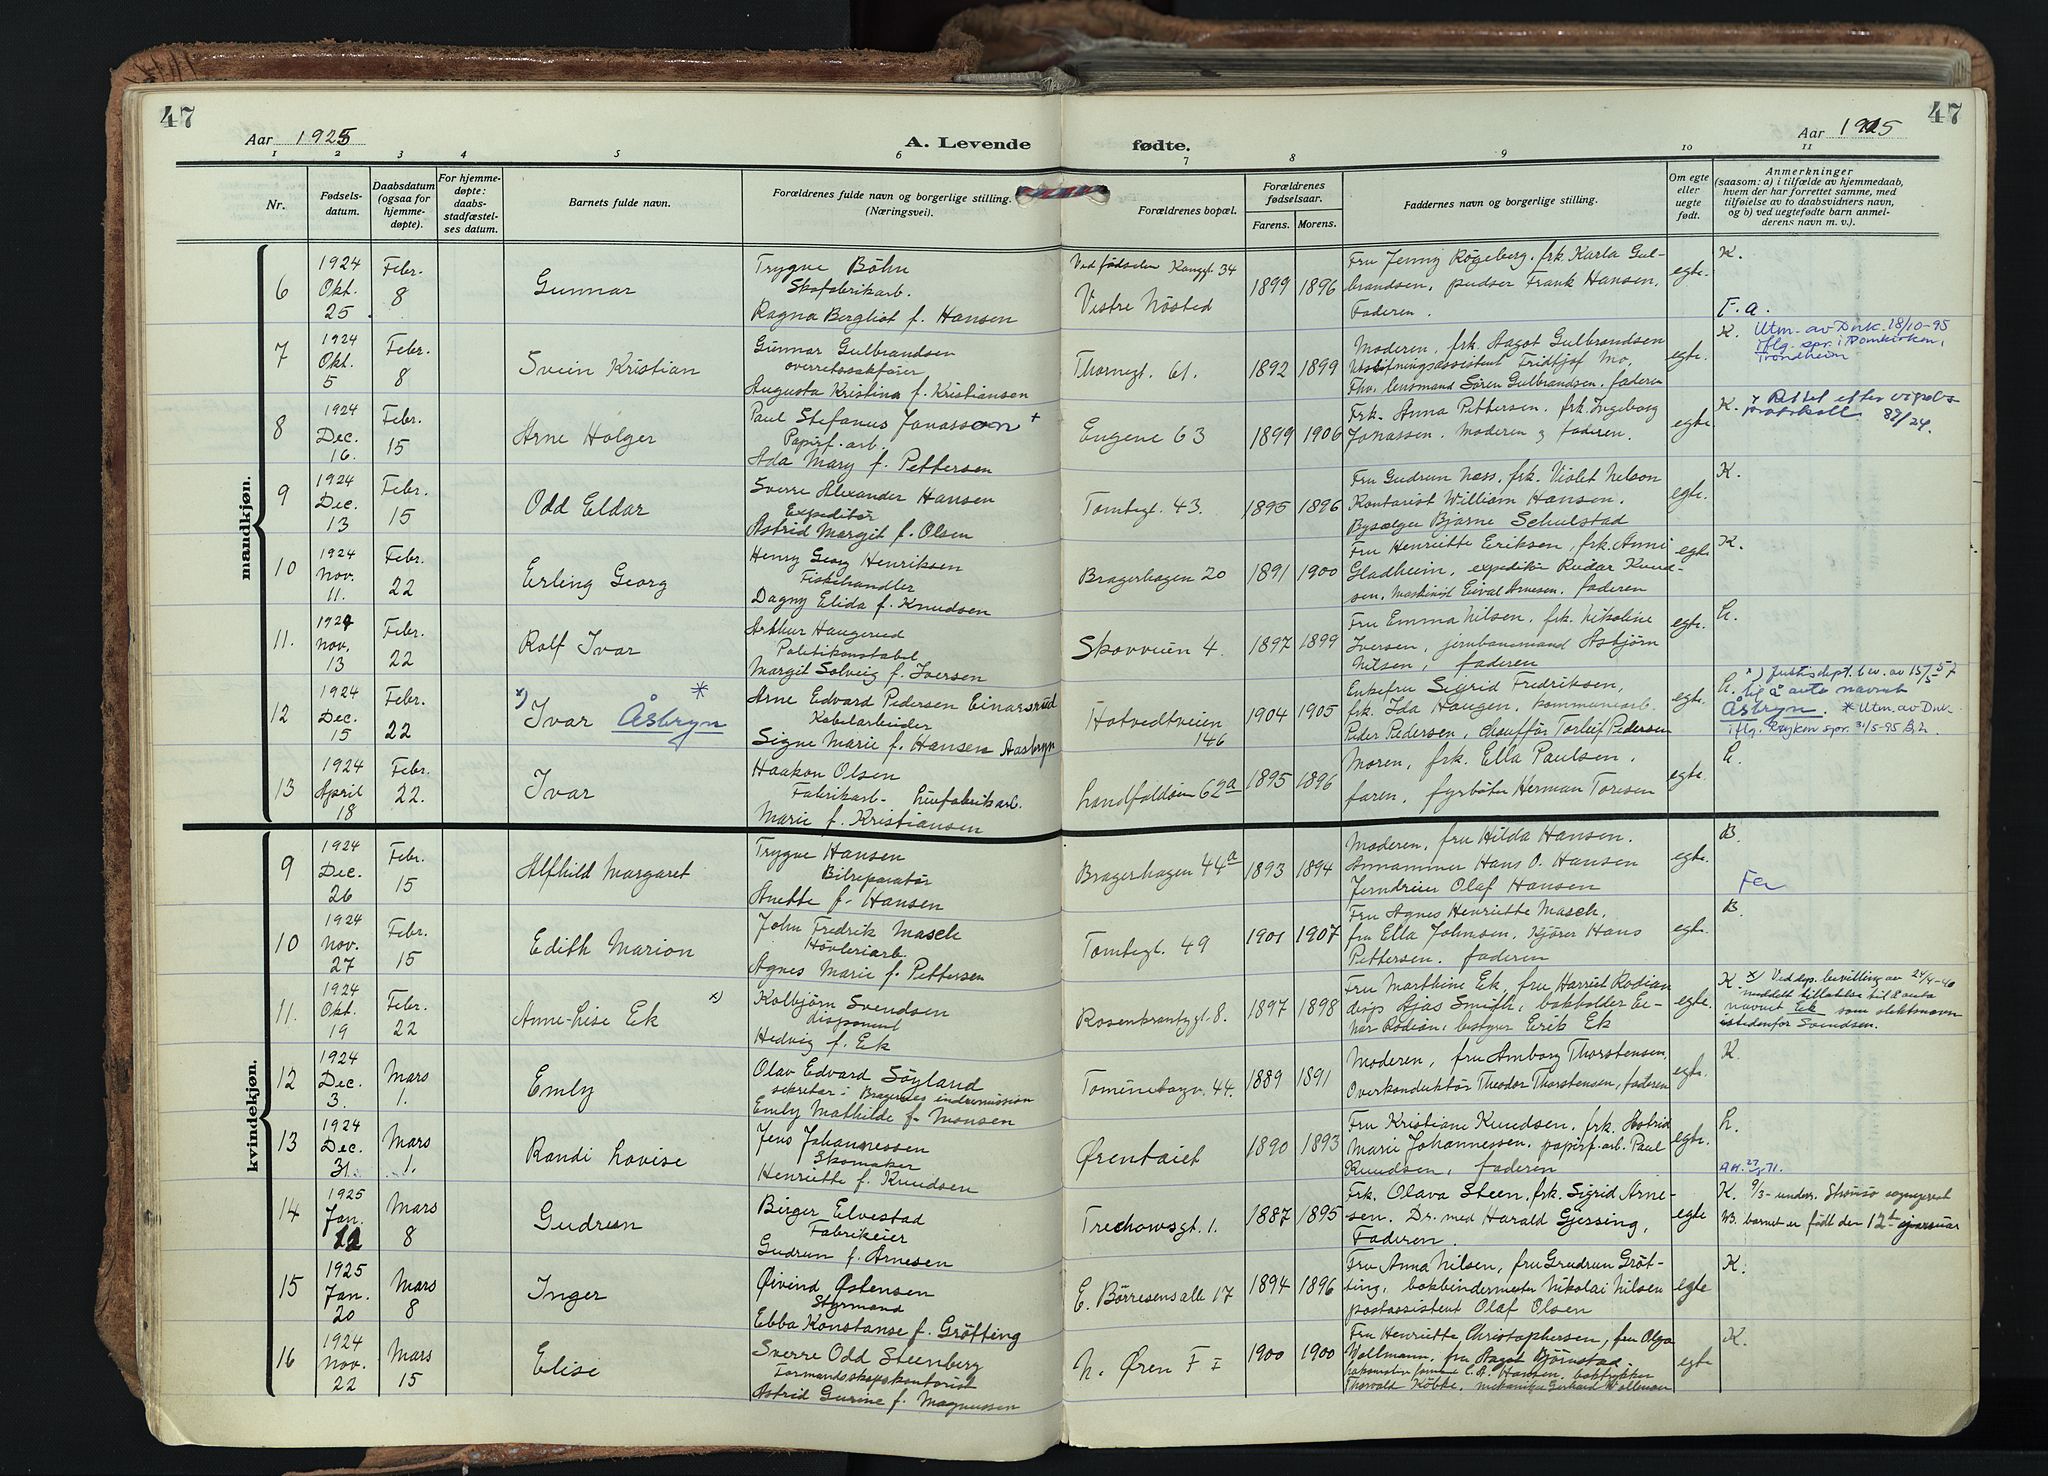 47
Aar 1925
A. Levende
1 2 3 4 5 6
Nr.
Fødsels-
datum.
Daabsdatum
(ogsaa for
hjemme-
døpte).
For hjemme-
døpte:
daabs-
stadfæstel-
ses datum.
Barnets fulde navn.
Forældrenes fulde navn og borgerlige stilling.
(Næringsvei).
mandkjøn.
6
1924
Okt.
25
Febr.
8
Gunnar
Trygve Böhn
Skofabrikarb.
Ragna Bergliot f. Hansen
7
1924
Okt.
5
Febr.
8
Svein Kristian
Gunnar Gulbrandsen
overretssakfører
Augusta Kristina f. Kristiansen
8
1924
Dec.
16.
Febr.
15
Arne Holger
Paul Stefanus Jonasson +
Papirf. arb.
Ada Mary f. Pettersen
9
1924
Dec.
13
Febr.
15
Odd Eldar
Sverre Alexander Hansen
Expeditør
Astrid Margit f. Olsen
10
1924
Nov.
11.
Febr.
22
Erling Georg
Henry Georg Henriksen
Fiskehandler
Dagny Elida f. Knudsen
11.
1924
Nov.
13
Febr.
22
Rolf Ivar
Arthur Haugerud
Politikonstabel
Margit Solveig f. Iversen
12
1924
Dec.
15
Febr.
22
x) Ivar Åsbryn *
Arne Edvard Pedersen Einarsrud
Kabelarbeider
Signe Marie f. Hansen Aasbryn
13
1924
April
18
Febr.
22.
Ivar
Haakon Olsen
Fabrikarb.
Marie f. Kristiansen
kvindekjøn.
9
1924
Dec.
26
Febr.
15
Alfhild Margaret
Trygve Hansen
Bilreparatør
Anette f. Hansen
10
1924
Nov.
27
Febr.
15
Edith Marion
John Fredrik Masch
Høvleriarb.
Agnes Marie f. Pettersen
11.
1924
Okt.
19
Febr.
22
Anne-Lise Ek x)
Kolbjörn Svendsen
disponent
Hedvig f. Ek
12
1924
Dec.
3.
Mars
1.
Emly
Olav Edvard Söyland
sekretær i Bragernes indremission
Emly Mathilde f. Monsen
13
1924
Dec.
31.
Mars
1.
Randi Lovise
Jens Johannessen
Skomaker
Henriette f. Knudsen
14
1925
Jan.
12
Mars
8
Gudrun
Birger Elvestad
Fabrikeier
Gudrun f. Arnesen
15
1925
Jan.
20
Mars
8
Inger
Øivind Østensen
Styrmand
Ebba Konstanse f. Grötting
16
1924
Nov.
22
Mars
15
Elise
Sverre Odd Steenberg
Formandsskapskontorist
Astrid Gurine f. Magnussen
47
Aar 1925
fødte.
7 8 9 10 11
Forældrenes bopæl.
Forældrenes
fødselsaar.
Farens. Morens.
Faddernes navn og borgerlige stilling.
Om egte
eller
uegte
født.
Anmerkninger
(saasom: a) i tilfælde av hjemmedaab,
hvem der har forrettet samme, med
tilføielse av to daabsvidners navn,
og b) ved uegtefødte barn anmel-
derens navn m. v.).
Ved fødselen Konggt. 34
Vestre Nøsted
1899 1896
Fru Jenny Rögeberg, frk. Karla Gul-
brandsen, pudser Frank Hansen,
Faderen.
egte.
K.
F.a.
Thornegt. 61.
1892 1899
Moderen, frk. Aagot Gulbrandsen
Fridtjof Mo,
Thv. lensmand Sören Gulbrandsen, faderen
egte.
K. Utm. av Dnk. 18/10-95
iflg. spr. i Domkirken,
Trondheim
Eugene 63
1899 1906
Frk. Anna Pettersen, frk. Ingeborg
Jonassen. Moderen og faderen.
egte.
K. Rettet efter vigsels-
protokoll 89/24.
Tomtegt. 43.
1895 1896
Fru Gudrun Næss, frk. Violet Nelson
Kontorist William Hansen,
Bysælger Bjarne Schulstad
egte.
K.
Bragerhagen 20
1891 1900
Fru Henriette Eriksen, frk. Anni
Gladheim, expeditør Reidar Knud-
sen, Maskinist Eival Arnesen, faderen
egte
K.
Skovveien 4.
1897 1899
Fru Emma Nilsen, frk. Nikoline
Iversen, jernbanemand Asbjørn
Nilsen, faderen
egte.
L.
Hotvedtveien
146
1904 1905
Enkefru Sigrid Fredriksen,
frk. Ida Haugen, kommunearb.
Peder Pedersen, chauffør Torleif Pedersen
egte.
x) Justisdept. bev. av 15/5-57
L. til å anta navnet
Åsbryn. * Utm. av Dnk.
iflg. Røyken spr. 31/5-95
Landfaldøen 62a
1895 1896
Moren, frk. Ella Paulsen,
faren, fyrbøter Herman Toresen
egte.
L.
Bragerhagen 44a
1893 1894
Moderen, fru Hilda Hansen.
Hans O. Hansen
Jerndreier Olaf Hansen
egte.
B.
Fa
Tomtegt. 49
1901 1907
Fru Agnes Henriette Masch,
fru Ella Johnsen, Kjører Hans
Pettersen, faderen
egte.
B.
Rosenkrantzgt. 8.
1897 1898
Fru Marthine Ek, fru Harriet Rodian
disp. Ajas Smith, bokholder Ei-
nar Rodian, bestyrer Erik Ek
egte.
K. x) Ved dep. bevilling av 24/4-40
meddelt tillatelse til å anta
navnet Ek som slektsnavn
istedenfor Svendsen.
44.
1889 1891
Moderen, fru Amborg Thorstensen,
Overkonduktør Theodor Thorstensen, faderen
egte.
K.
Ørentaiet
1890 1893
Fru Kristiane Knudsen, frk. Astrid
Marie Johannessen, papirf. arb. Paul
Knudsen, faderen
egte.
L.
Trechowsgt. 1.
1887 1895
Frk. Olava Steen, frk. Sigrid Arne-
sen. Dr. med Harald Gjessing,
Faderen.
egte
K. 9/3- underr. Strømsø sogneprest
NB. barnet er født den 12te januar
E. Börresens alle 17
1894 1896
Fru Anna Nilsen, fru Gudrun Gröt-
ting, bokbindermester Nikolai Nilsen
postassistent Olaf Olsen
egte
K.
N. Øren
1900 1900
Fru Henriette Christophersen, fru Olga
Wollmann, fru Aagot Björnstad,
Hansen, boktrykker
Thorvald Köbke, mekaniker Gerhard Wollmann
egte
K.